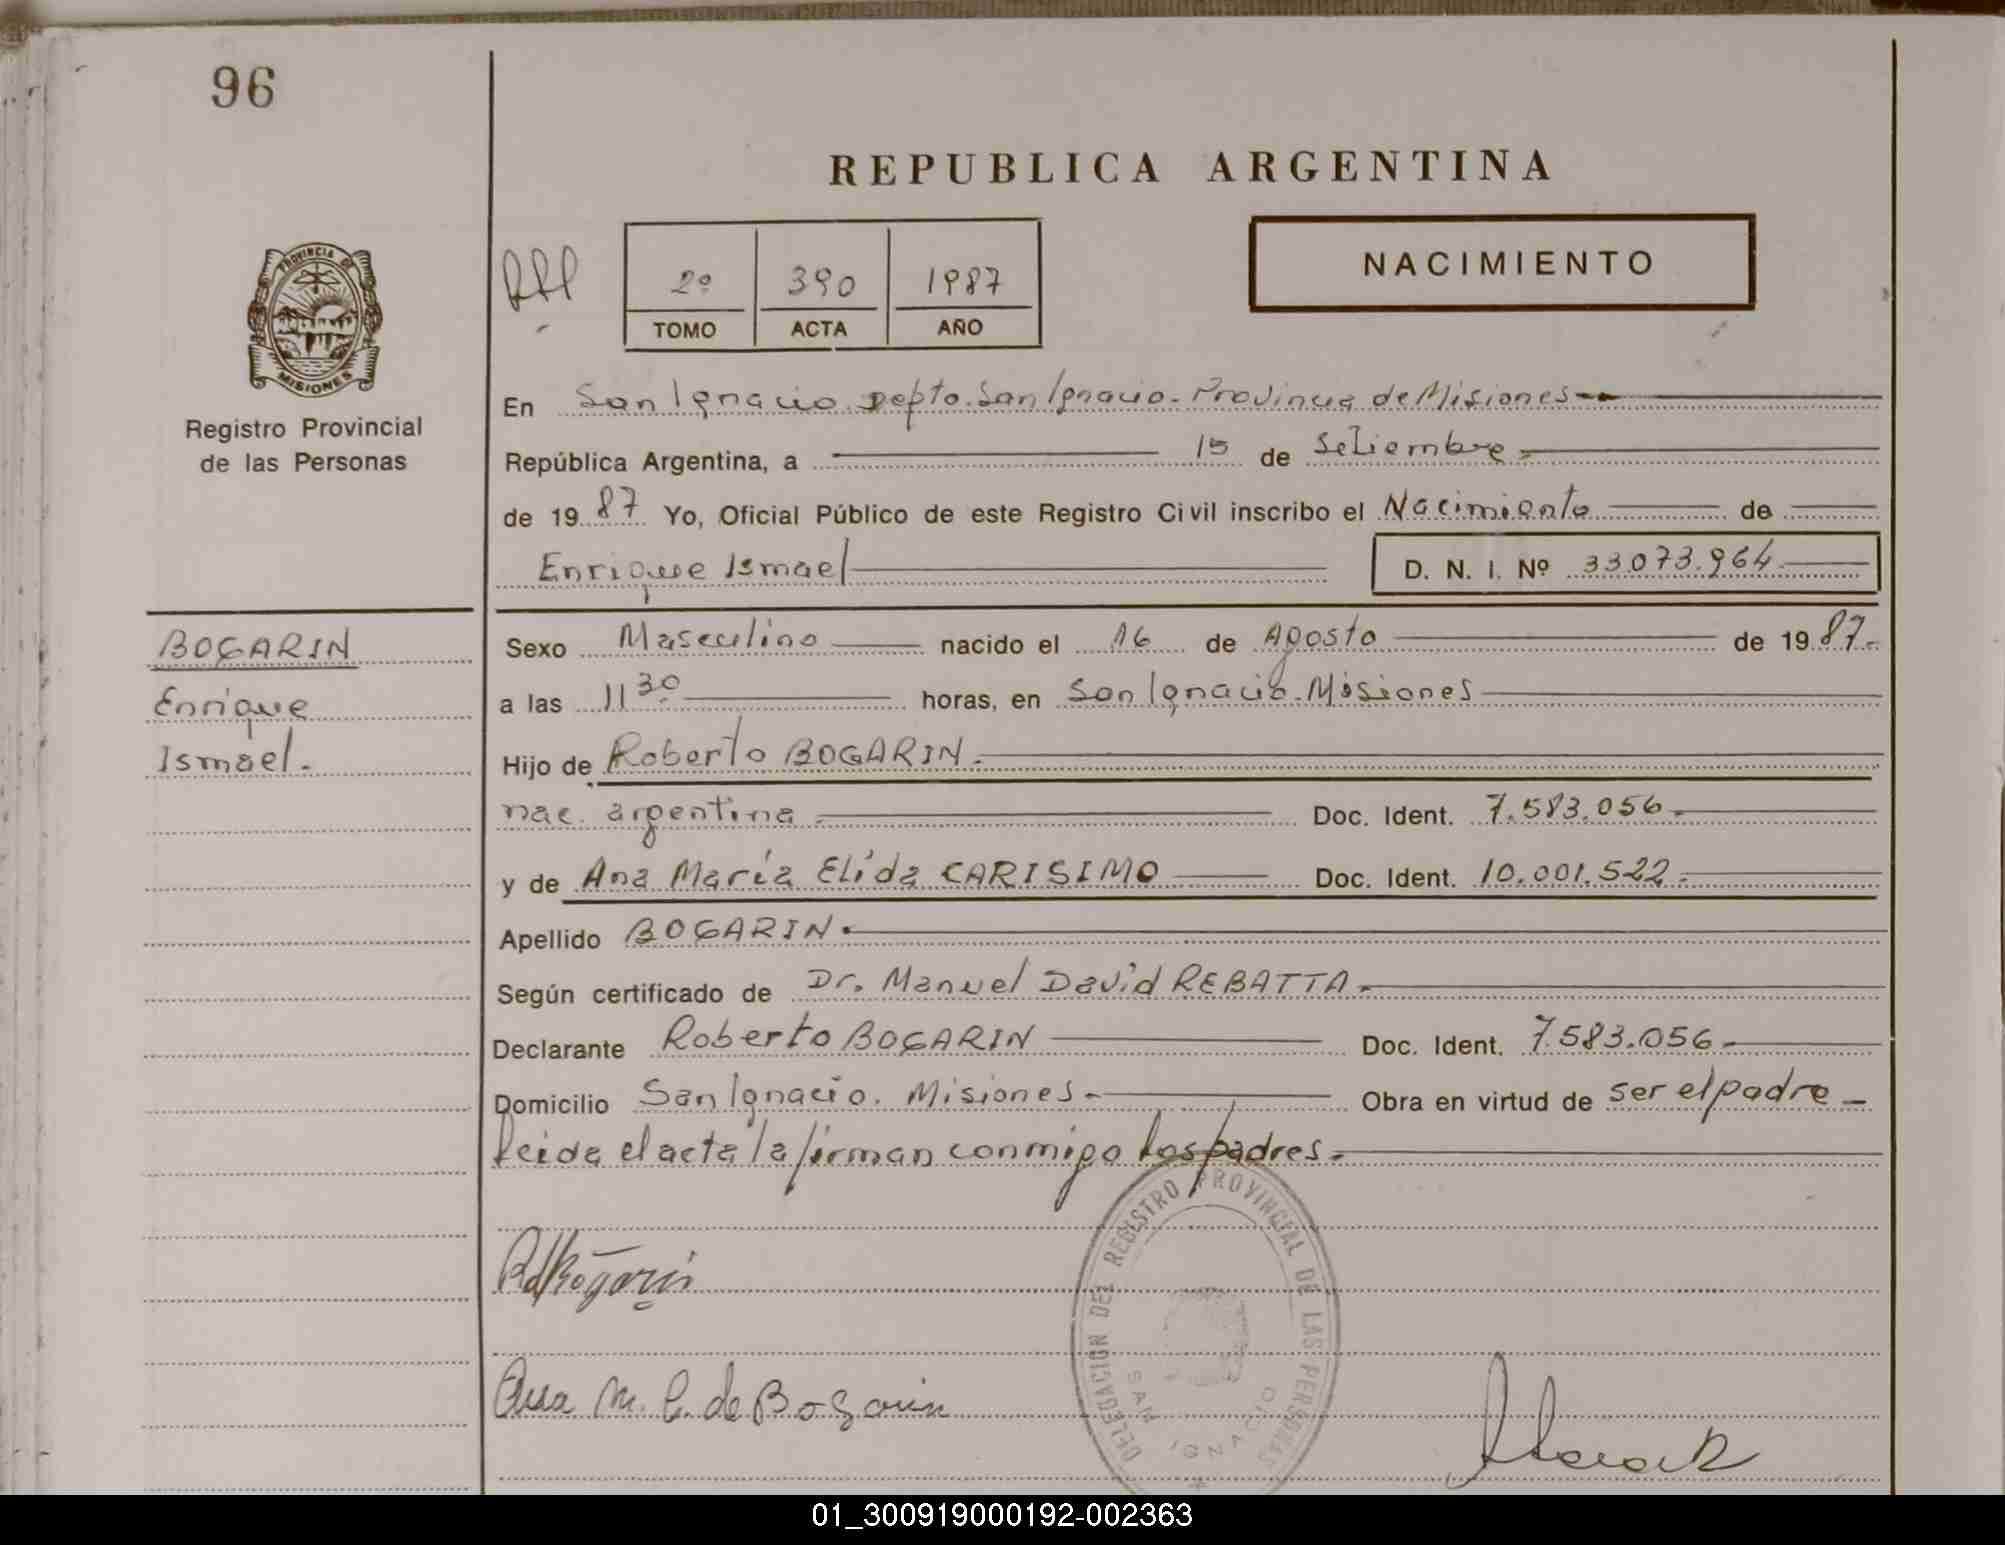 96
REPUBLICA ARGENTINA
NACIMIENTO
2º 390 1987
TOMO ACTA AÑO
PROVINCIA DE
MISIONES
Registro Provincial
de las Personas
En San Ignacio Depto. San Ignacio - Provincia de Misiones -
República Argentina, a 15 de Setiembre -
de 19 87 Yo, Oficial Público de este Registro Civil inscribo el Nacimiento de
Enrique Ismael D. N. I. Nº 33.073.964 -
BOGARIN
Enrique
Ismael.
Sexo Masculino nacido el 16 de Agosto de 19 87.-
a las 11 30 horas, en San Ignacio. Misiones
Hijo de Roberto BOGARIN.-
nac. argentina - Doc. Ident. 7.583.056 -
y de Ana María Elida CARISIMO Doc. Ident. 10.001.522.-
Apellido BOGARIN.
Según certificado de Dr. Manuel David REBATTA.-
Declarante Roberto BOGARIN Doc. Ident. 7.583.056 -
Domicilio San Ignacio. Misiones - Obra en virtud de ser el padre -
leida el acta la firman conmigo los padres.-
DELEGACION DEL REGISTRO PROVINCIAL DE LAS PERSONAS
SAN IGNACIO
Bogarin
Ana M. C. de Bogarin
01_300919000192-002363